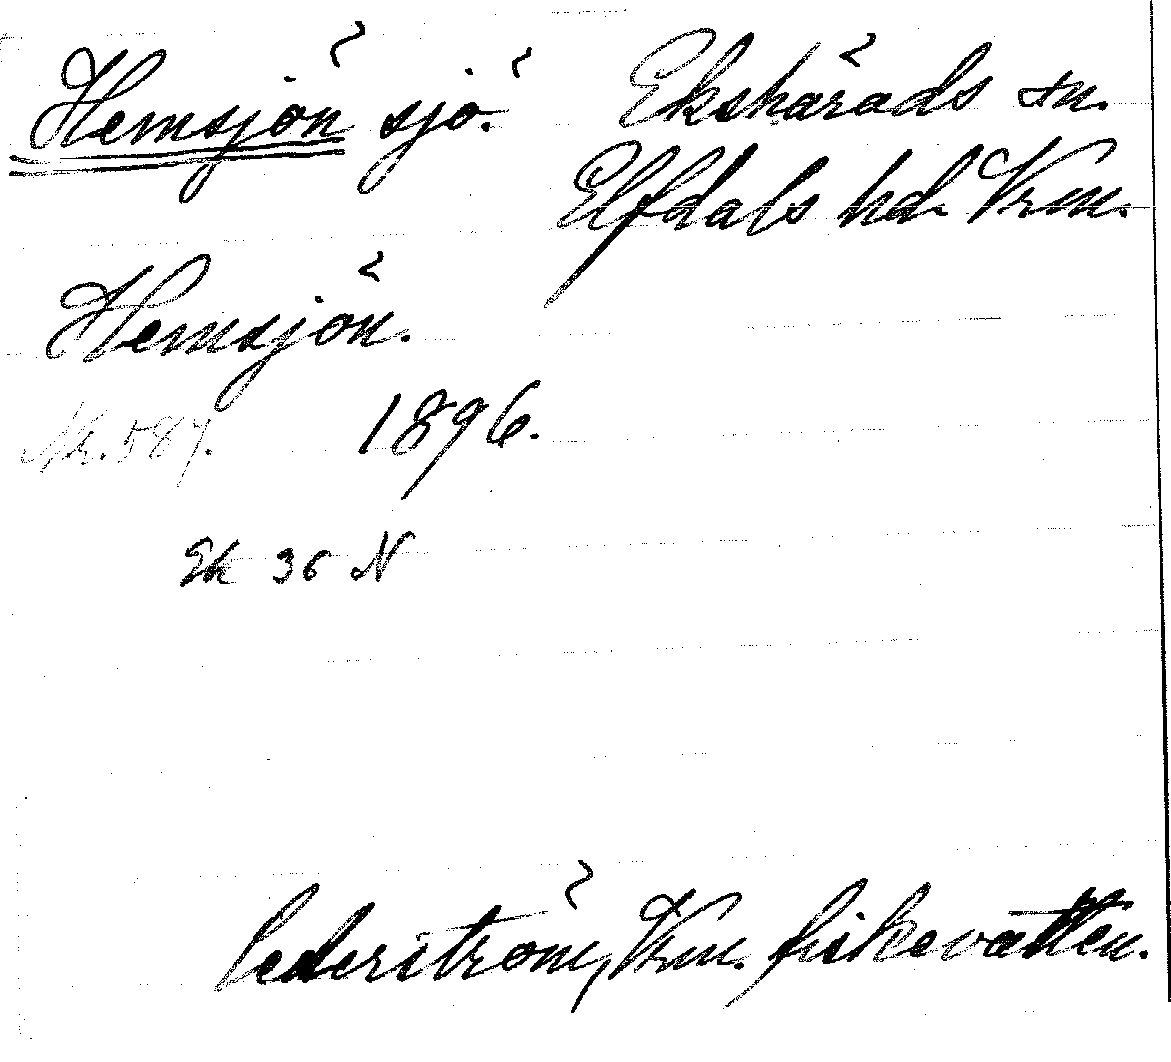 Hemsjön sjö. Ekshärads sn.
Elfdals hd. Vrm.
Hemsjön.
Nr. 587. 1896.
Ek 36 N
Cederström, Vrm. fiskevatten.